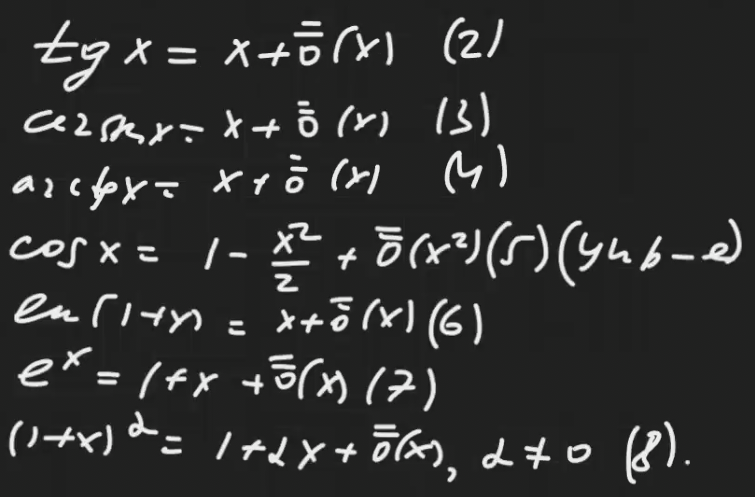 tg x = x + ō̄(x) (2)
arcsin x = x + ō̄(x) (3)
arctg x = x + ō̄(x) (4)
cos x = 1 - x²/2 + ō̄(x²) (5) (упр-е)
ln(1+x) = x + ō̄(x) (6)
eˣ = 1 + x + ō̄(x) (7)
(1+x)^α = 1 + αx + ō̄(x), α ≠ 0 (8).